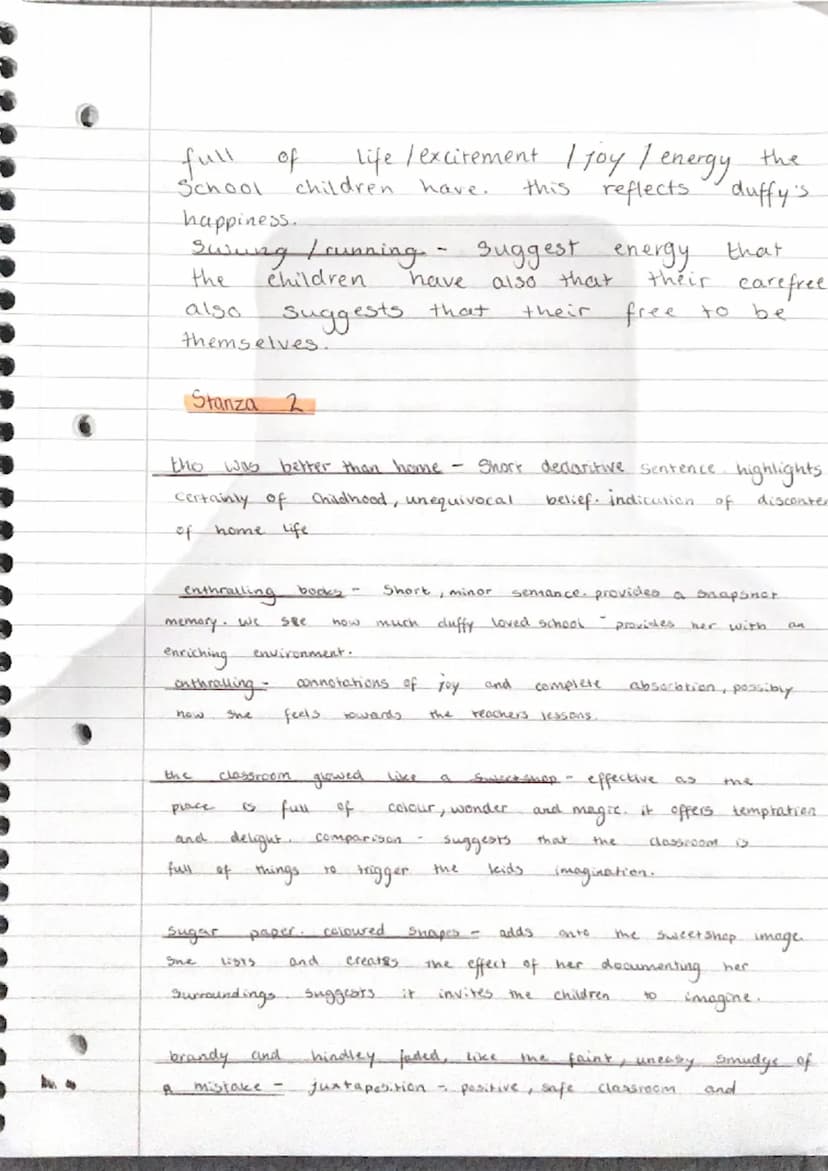 full of life /excitement / joy / energy the
School children have. this reflects duffy's
happiness.
Swung / running - Suggest energy that
the children have also that their carefree
also suggests that their free to be
themselves.
Stanza 2
this was better than home - Short declaritive sentence highlights
certainly of childhood, unequivocal belief. indication of disconte
of home life
enthralling books - Short, minor sentance. provides a snapshot
memory. we see how much duffy loved school - provides her with an
enriching environment.
enthralling - connotations of joy and complete absorbtion, possibly
how she feels towards the teachers lessons.
the classroom glowed like a sweetshop - effective as the
place is full of colour, wonder and magic. it offers temptation
and delight. comparison - suggests that the classroom is
full of things to trigger the kids imagination.
Sugar paper. coloured shapes - adds onto the sweetshop image.
She lists and creates the effect of her documenting her
surroundings. suggests it invites the children to imagine.
brandy and hindley faded, like the faint, uneasy smudge of
a mistake - juxtaposition - positive, safe classroom and